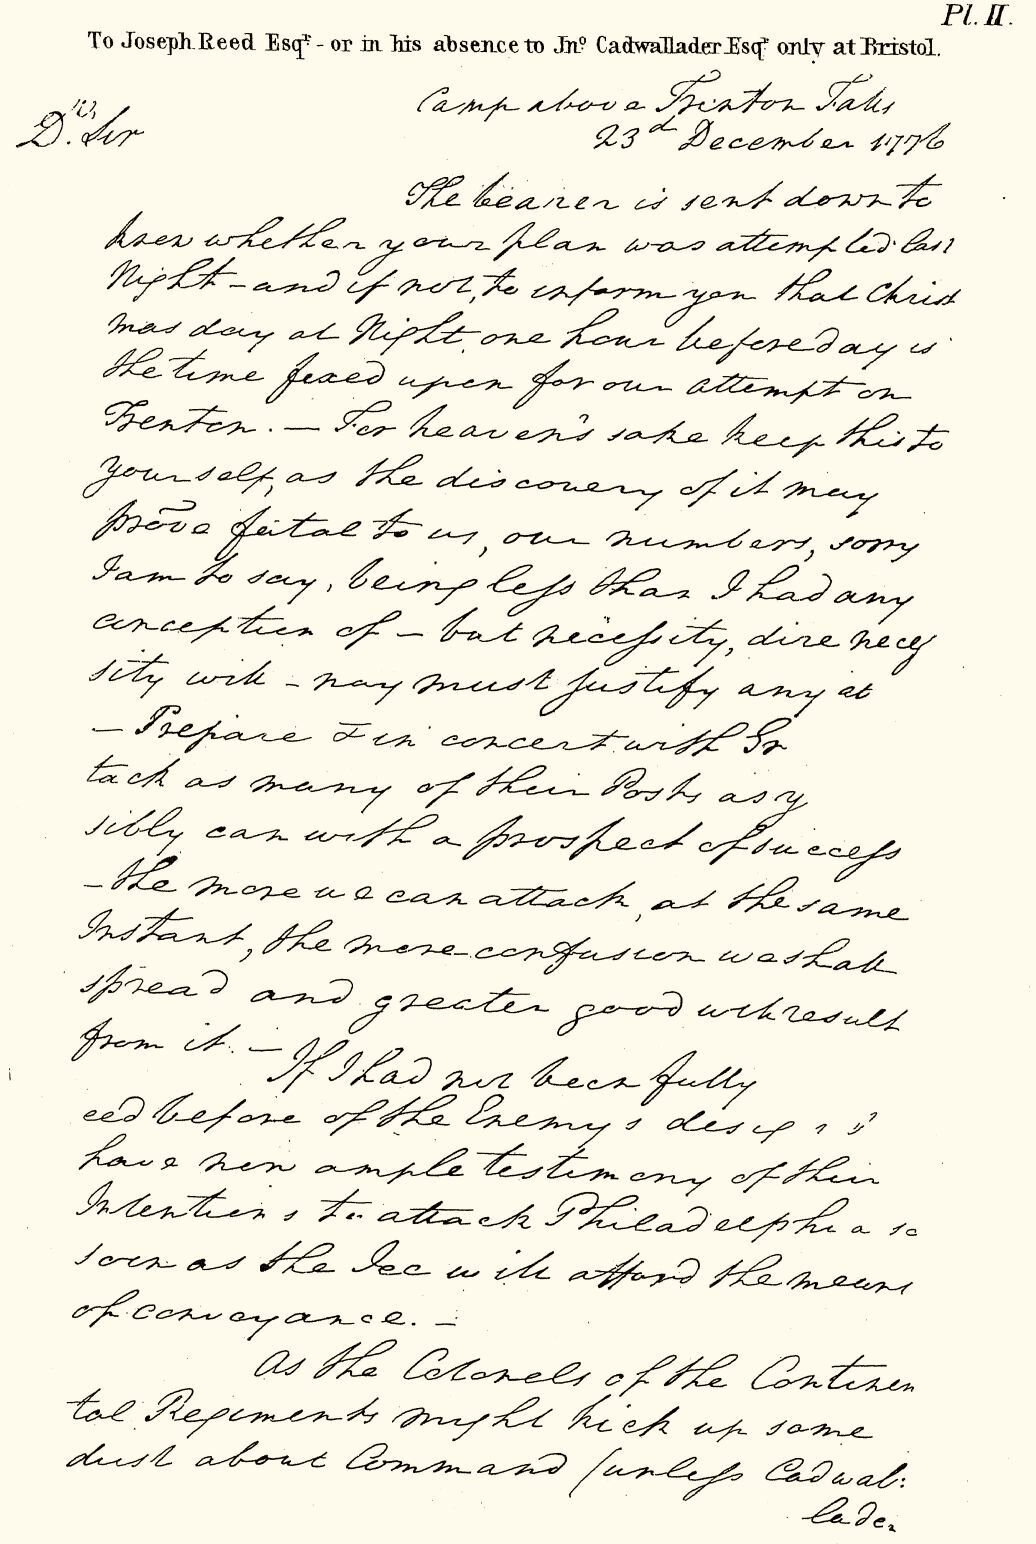 Pl. II.
To Joseph Reed Esqr - or in his absence to Jno Cadwallader Esqr only at Bristol.
Camp above Trenton Falls
23d December 1776
Dr. Sir
The bearer is sent down to
know whether your plan was attempted last
Night - and if not, to inform you that Christ
mas day at Night, one hour before day is
the time fixed upon for our attempt on
Trenton. - For heaven's sake keep this to
yourself, as the discovery of it may
prove fatal to us, our numbers, sorry
I am to say, being less than I had any
conception of - but necessity, dire neces
sity will - nay must justify any at
- Prepare & in concert with Gr
tack as many of their Posts as y
sibly can with a prospect of success
- the more we can attack, at the same
Instant, the more confusion we shall
spread and greater good will result
from it. -
If I had not been fully
ced before of the Enemys designs
have now ample testimony of their
Intentions to attack Philadelphia so
soon as the Ice will afford the means
of conveyance. -
As the Colonels of the Continen
tal Regiments might kick up some
dust about Command (unless Cadwal:
lader